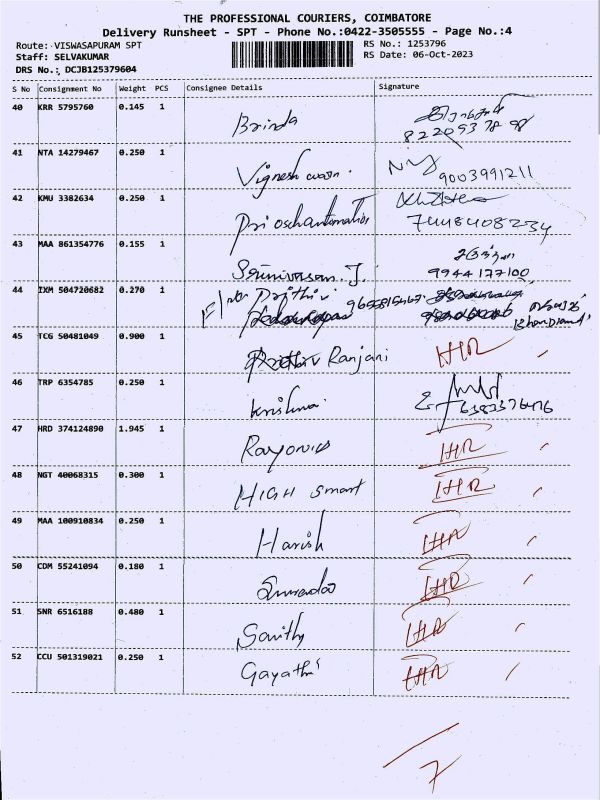 THE PROFESSIONAL COURIERS, COIMBATORE
Delivery Runsheet - SPT - Phone No.:0422-3505555 - Page No.:4
Route: VISWASAPURAM SPT RS No.: 1253796
Staff: SELVAKUMAR RS Date: 06-Oct-2023
DRS No.: DCJB125379604
S No Consignment No Weight PCS Consignee Details Signature
40 KRR 5795760 0.145 1
Brinda
82209378 98
41 NTA 14279467 0.250 1
Vignesh 9003991211
42 KMU 3382634 0.250 1
7448408234
43 MAA 861354776 0.155 1
Srinivasan. J. 9944 177100
44 IXM 504720682 0.270 1
Prithiv
45 TCG 50481049 0.900 1
Ranjani IHR
46 TRP 6354785 0.250 1
krishna.
47 HRD 374124890 1.945 1
IHR
48 NGT 40068315 0.300 1
HIGH Smart IHR
49 MAA 100910834 0.250 1
Harish IHR
50 CDM 55241094 0.180 1
IHR
51 SNR 6516188 0.480 1
IHR
52 CCU 501319021 0.250 1
Gayathri IHR
7